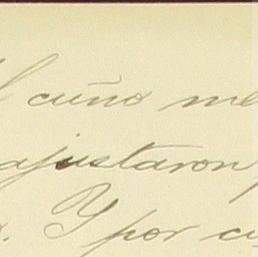 l cuño me
ajustaron
. Y por cu